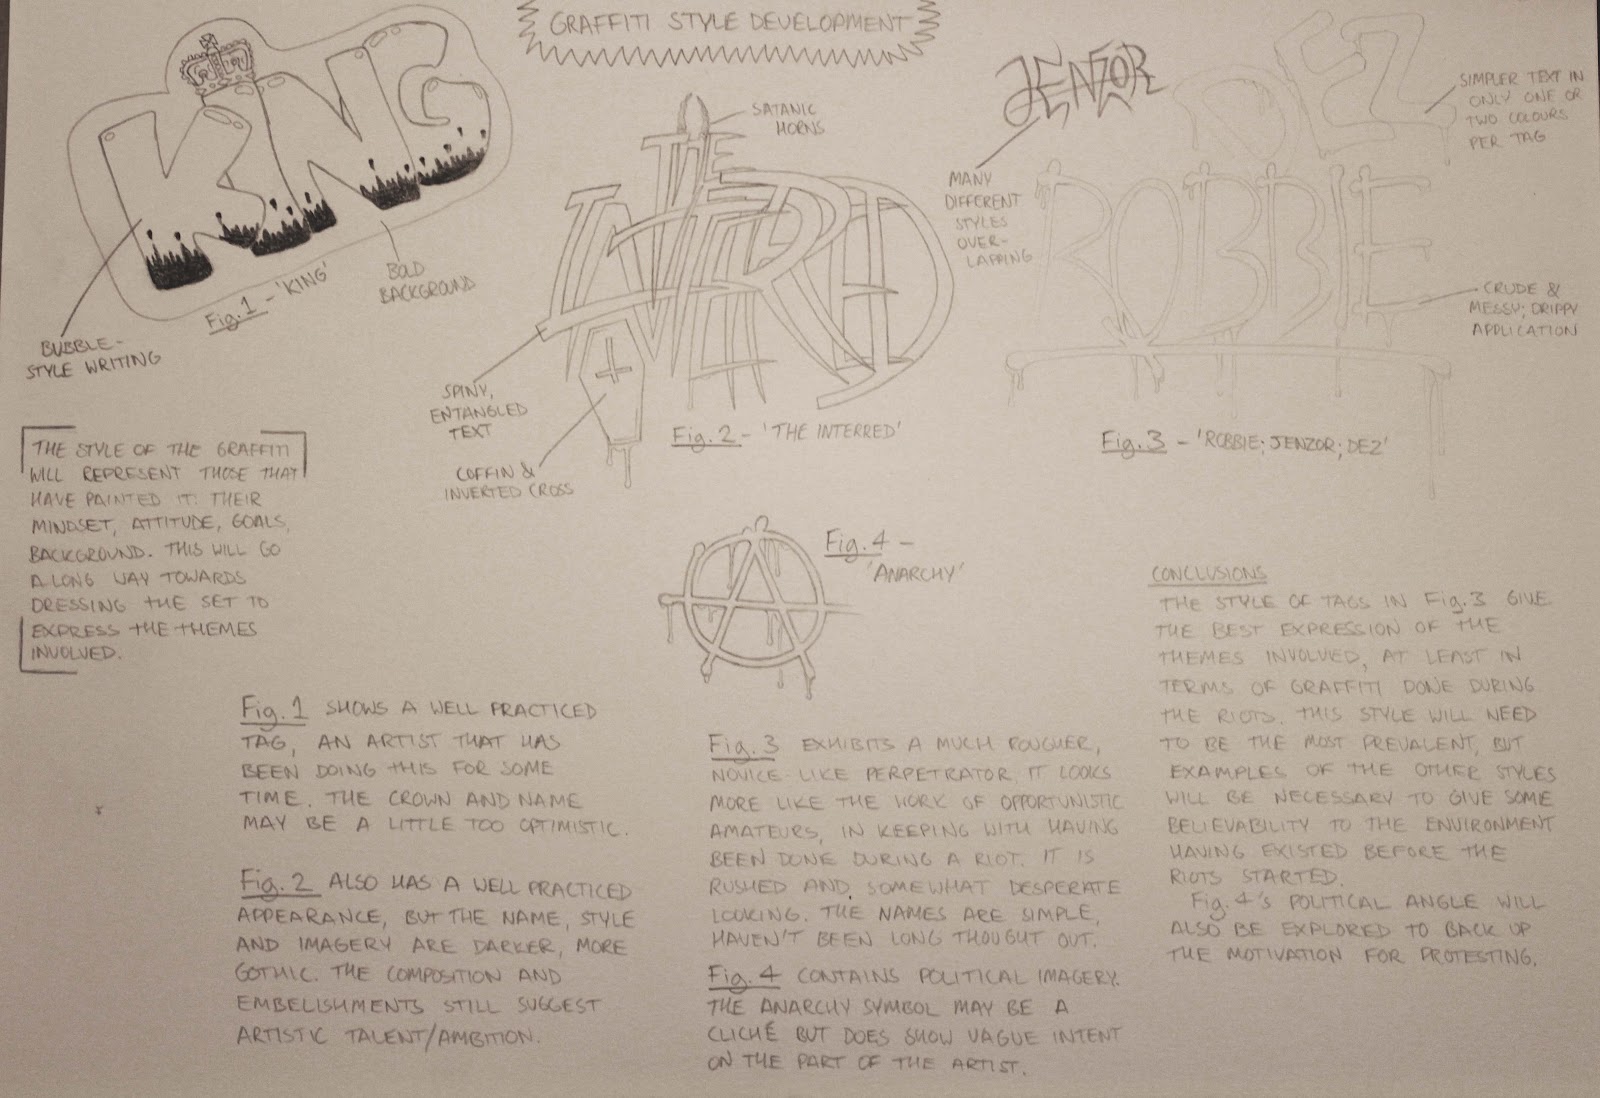 GRAFFITI STYLE DEVELOPMENT
KNG
Fig.1 - 'KING'
BUBBLE-
STYLE WRITING
BOLD
BACKGROUND
THE INTERRED
SATANIC
HORNS
SPINY,
ENTANGLED
TEXT
COFFIN &
INVERTED CROSS
Fig.2 - 'THE INTERRED'
JENZOR
DEZ
ROBBIE
MANY
DIFFERENT
STYLES
OVER-
LAPPING
SIMPLER TEXT IN
ONLY ONE OR
TWO COLOURS
PER TAG
CRUDE &
MESSY; DRIPPY
APPLICATION
Fig.3 - 'ROBBIE; JENZOR; DEZ'
A
Fig.4 -
'ANARCHY'
THE STYLE OF THE GRAFFITI
WILL REPRESENT THOSE THAT
HAVE PAINTED IT: THEIR
MINDSET, ATTITUDE, GOALS,
BACKGROUND. THIS WILL GO
A LONG WAY TOWARDS
DRESSING THE SET TO
EXPRESS THE THEMES
INVOLVED.
Fig.1 SHOWS A WELL PRACTICED
TAG, AN ARTIST THAT HAS
BEEN DOING THIS FOR SOME
TIME. THE CROWN AND NAME
MAY BE A LITTLE TOO OPTIMISTIC.
Fig.2 ALSO HAS A WELL PRACTICED
APPEARANCE, BUT THE NAME, STYLE
AND IMAGERY ARE DARKER, MORE
GOTHIC. THE COMPOSITION AND
EMBELISHMENTS STILL SUGGEST
ARTISTIC TALENT/AMBITION.
Fig.3 EXHIBITS A MUCH ROUGHER,
NOVICE-LIKE PERPETRATOR. IT LOOKS
MORE LIKE THE WORK OF OPPORTUNISTIC
AMATEURS, IN KEEPING WITH HAVING
BEEN DONE DURING A RIOT. IT IS
RUSHED AND SOMEWHAT DESPERATE
LOOKING. THE NAMES ARE SIMPLE,
HAVEN'T BEEN LONG THOUGHT OUT.
Fig.4 CONTAINS POLITICAL IMAGERY.
THE ANARCHY SYMBOL MAY BE A
CLICHÉ BUT DOES SHOW VAGUE INTENT
ON THE PART OF THE ARTIST.
CONCLUSIONS
THE STYLE OF TAGS IN Fig.3 GIVE
THE BEST EXPRESSION OF THE
THEMES INVOLVED, AT LEAST IN
TERMS OF GRAFFITI DONE DURING
THE RIOTS. THIS STYLE WILL NEED
TO BE THE MOST PREVALENT, BUT
EXAMPLES OF THE OTHER STYLES
WILL BE NECESSARY TO GIVE SOME
BELIEVABILITY TO THE ENVIRONMENT
HAVING EXISTED BEFORE THE
RIOTS STARTED.
Fig.4's POLITICAL ANGLE WILL
ALSO BE EXPLORED TO BACK UP
THE MOTIVATION FOR PROTESTING.